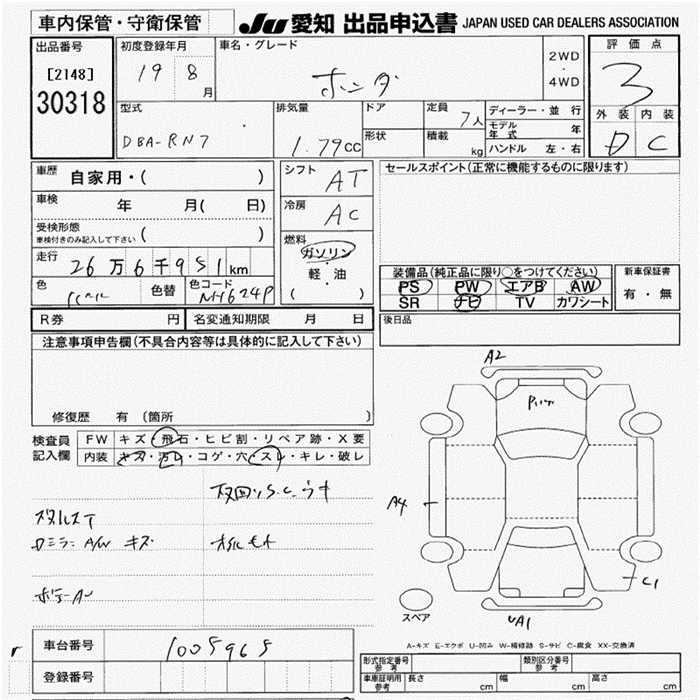 車内保管・守衛保管
JU 愛知 出品申込書 JAPAN USED CAR DEALERS ASSOCIATION
出品番号
[2148]
30318
初度登録年月
19 8月
車名・グレード
ホンダ
2WD
・
4WD
評価点
3
外装 内装
D C
型式
DBA-RN7
排気量
1.79CC
ドア
形状
定員
7人
積載
kg
ディーラー・並行
モデル年式 年
ハンドル 左・右
車歴
自家用・( )
車検
年 月( 日)
受検形態
車検付きのみ記入して下さい ( )
走行
26万6千951km
色
色替
色コード
NH624P
シフト
AT
冷房
AC
燃料
ガソリン
・
軽・油
( )
セールスポイント(正常に機能するものに限ります)
装備品(純正品に限り○をつけてください)
PS PW エアB AW
SR ナビ TV カワシート
新車保証書
有・無
R券 円
名変通知期限 月 日
後日品
注意事項申告欄(不具合内容等は具体的に記入して下さい)
修復歴 有 (箇所 )
検査員記入欄
FW キズ・飛石・ヒビ割・リペア跡・X要
内装 キズ・汚レ・コゲ・穴・スレ・キレ・破レ
キズ
A2
A4
C1
UA1
スペア
A-キズ E-エクボ U-凹み W-補修跡 S-サビ C-腐食 XX-交換済
車台番号
1005965
登録番号
形式指定番号
参考
類別区分番号
参考
車庫証明用
参考
長さ cm
幅 cm
高さ cm